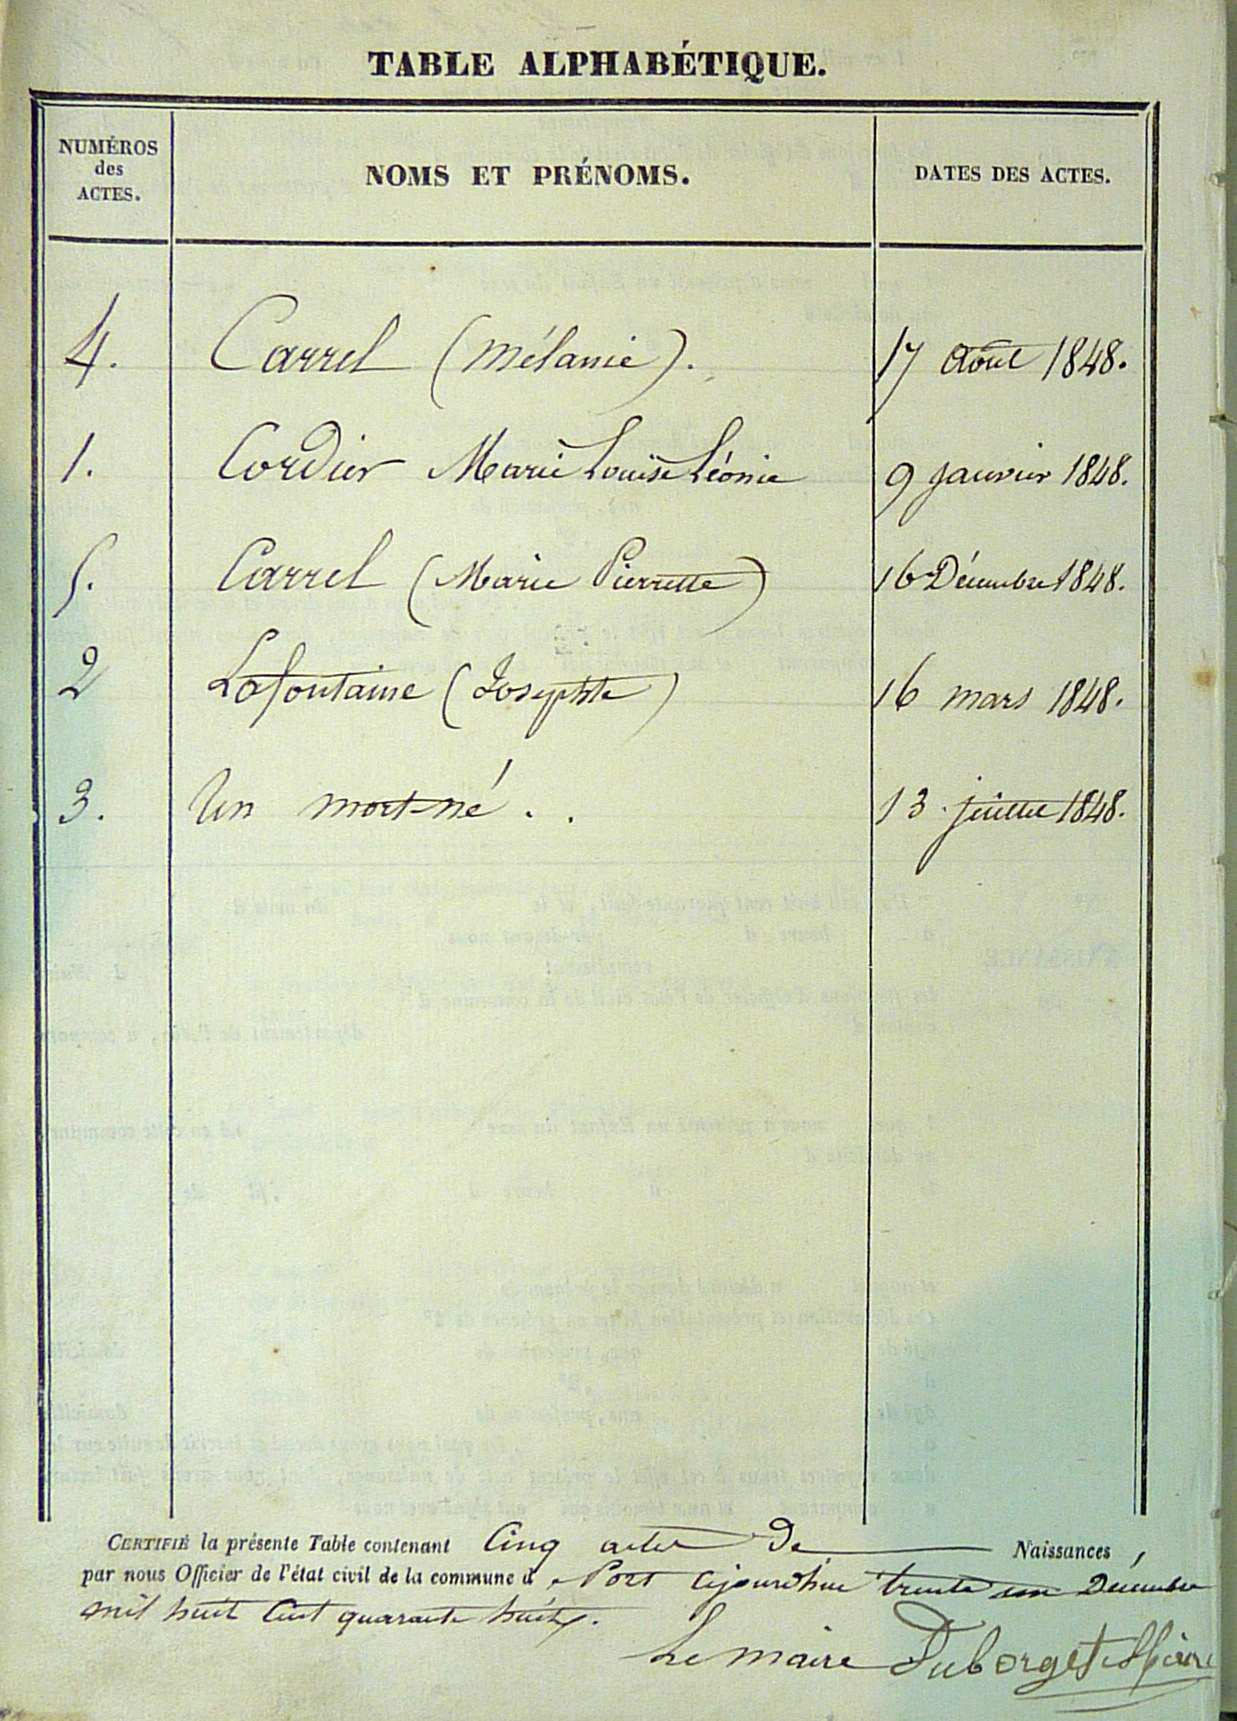 TABLE ALPHABÉTIQUE.
NUMÉROS des ACTES. NOMS ET PRÉNOMS. DATES DES ACTES.
4. Carrel (Mélanie). 17 août 1848.
1. Cordier Marie Louise Léonie 9 janvier 1848.
5. Carrel (Marie Pierrette) 16 Décembre 1848.
2 Lafontaine (Josephte) 16 mars 1848.
3. Un mort-né . . 13. juillet 1848.
CERTIFIÉ la présente Table contenant Cinq actes De Naissances,
par nous Officier de l'état civil de la commune d Port ajourd'hui trente un Décembre
mil huit Cent quarante huit.
Le maire Duborget Maire